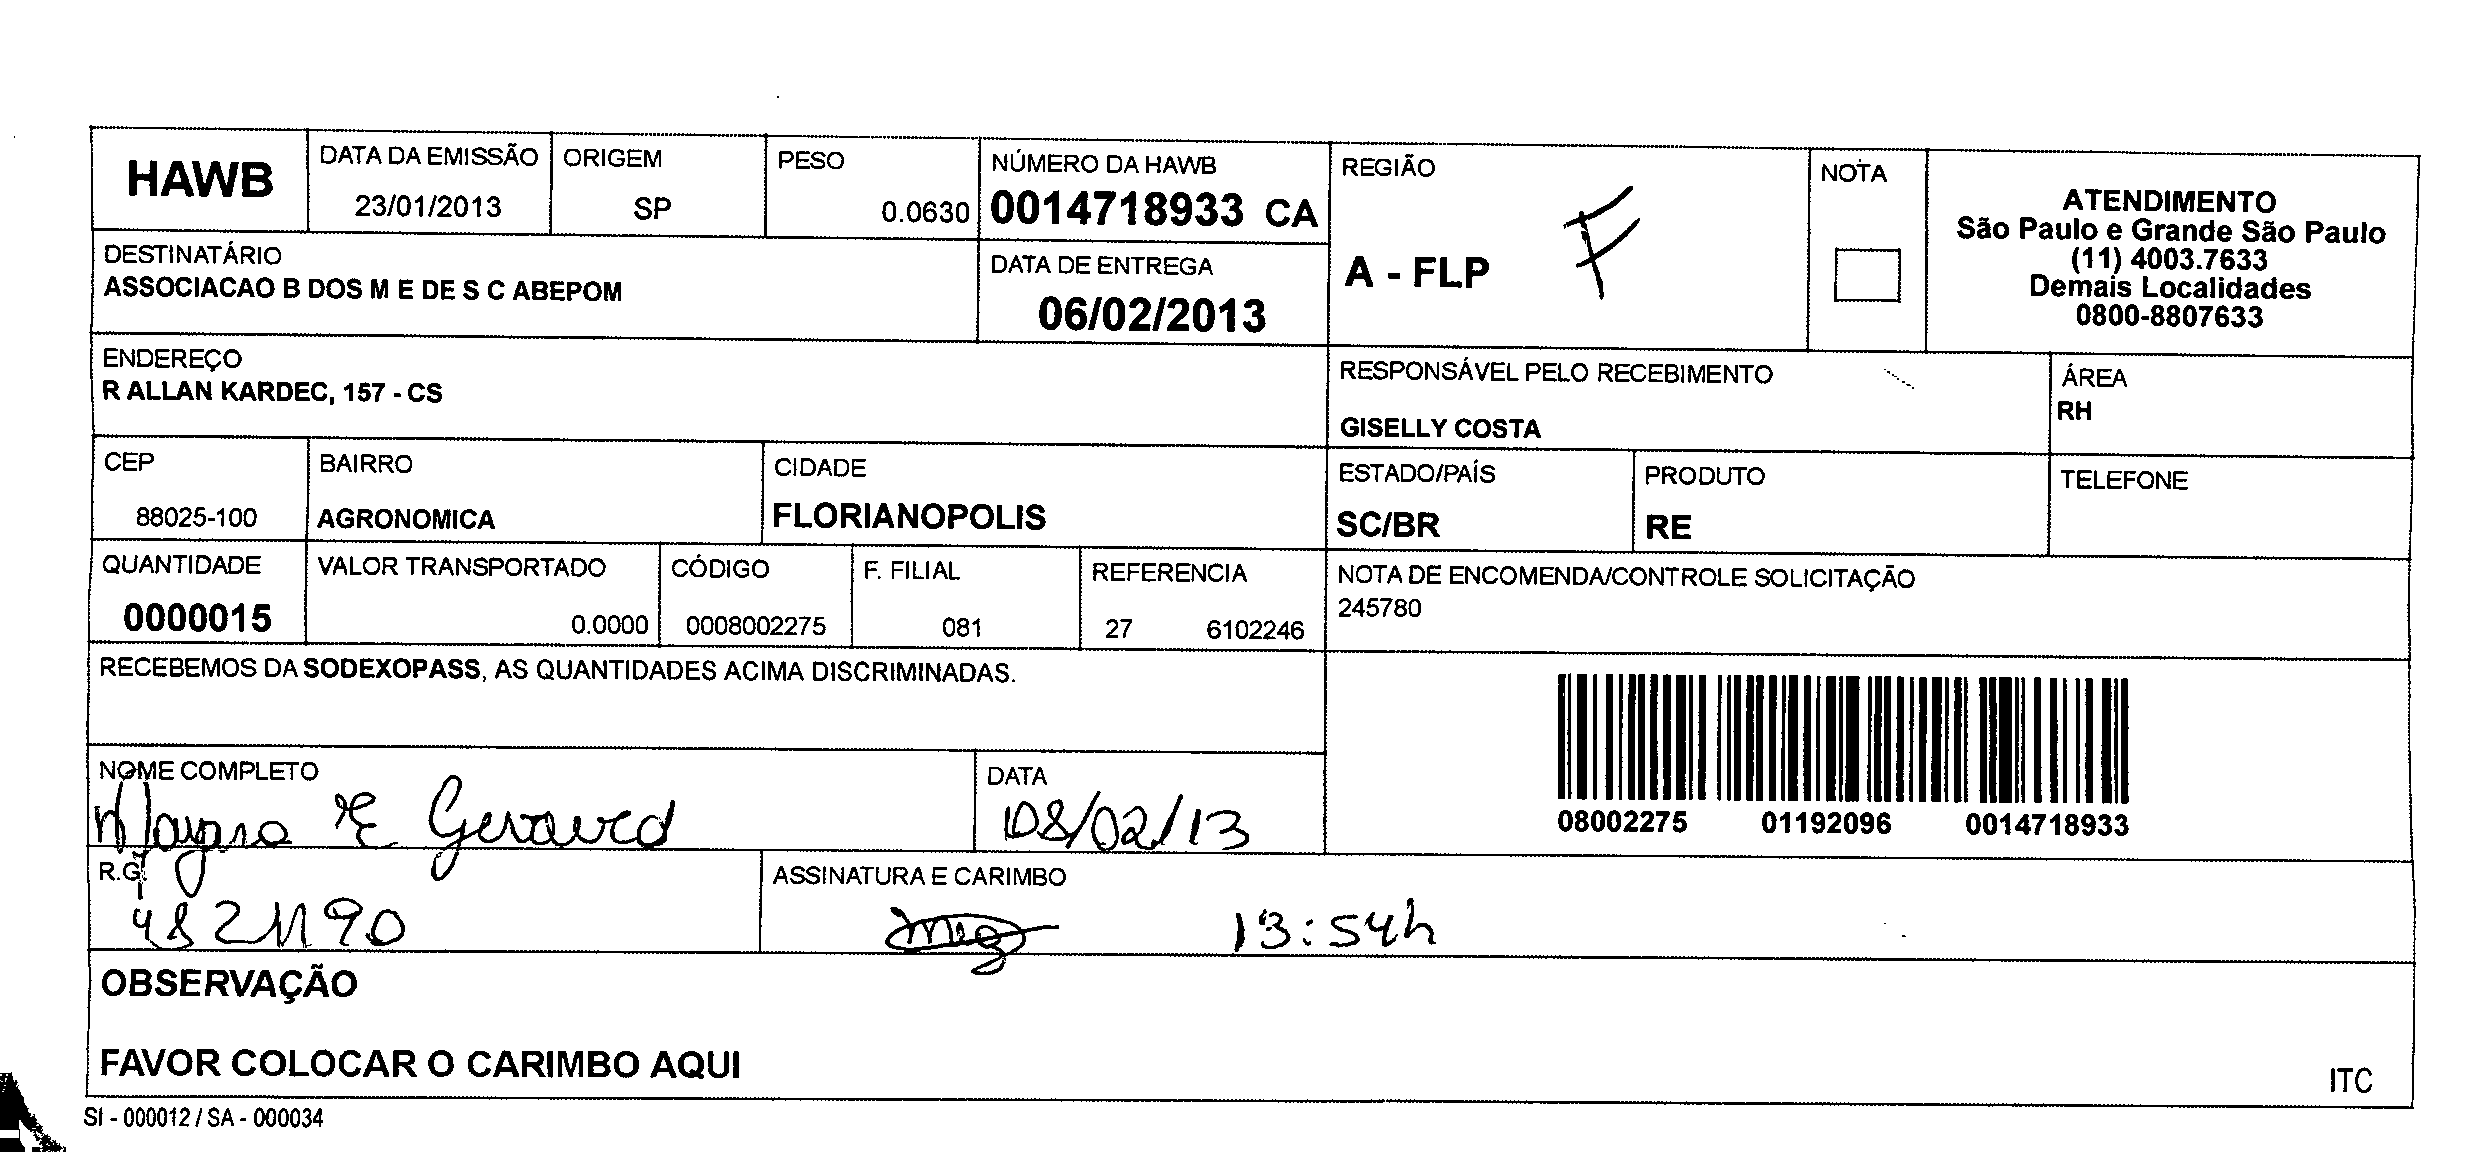 HAWB
DATA DA EMISSÃO
23/01/2013
ORIGEM
SP
PESO
0.0630
NÚMERO DA HAWB
0014718933 CA
REGIÃO
A - FLP
F
NOTA
ATENDIMENTO
São Paulo e Grande São Paulo
(11) 4003.7633
Demais Localidades
0800-8807633
DESTINATÁRIO
ASSOCIACAO B DOS M E DE S C ABEPOM
DATA DE ENTREGA
06/02/2013
ENDEREÇO
R ALLAN KARDEC, 157 - CS
RESPONSÁVEL PELO RECEBIMENTO
GISELLY COSTA
ÁREA
RH
CEP
88025-100
BAIRRO
AGRONOMICA
CIDADE
FLORIANOPOLIS
ESTADO/PAÍS
SC/BR
PRODUTO
RE
TELEFONE
QUANTIDADE
0000015
VALOR TRANSPORTADO
0.0000
CÓDIGO
0008002275
F. FILIAL
081
REFERENCIA
27 6102246
NOTA DE ENCOMENDA/CONTROLE SOLICITAÇÃO
245780
RECEBEMOS DA SODEXOPASS, AS QUANTIDADES ACIMA DISCRIMINADAS.
08002275 01192096 0014718933
NOME COMPLETO
Mayara E Gevaerd
DATA
08/02/13
R.G.
4821190
ASSINATURA E CARIMBO
13:54h
OBSERVAÇÃO
FAVOR COLOCAR O CARIMBO AQUI
ITC
SI - 000012 / SA - 000034